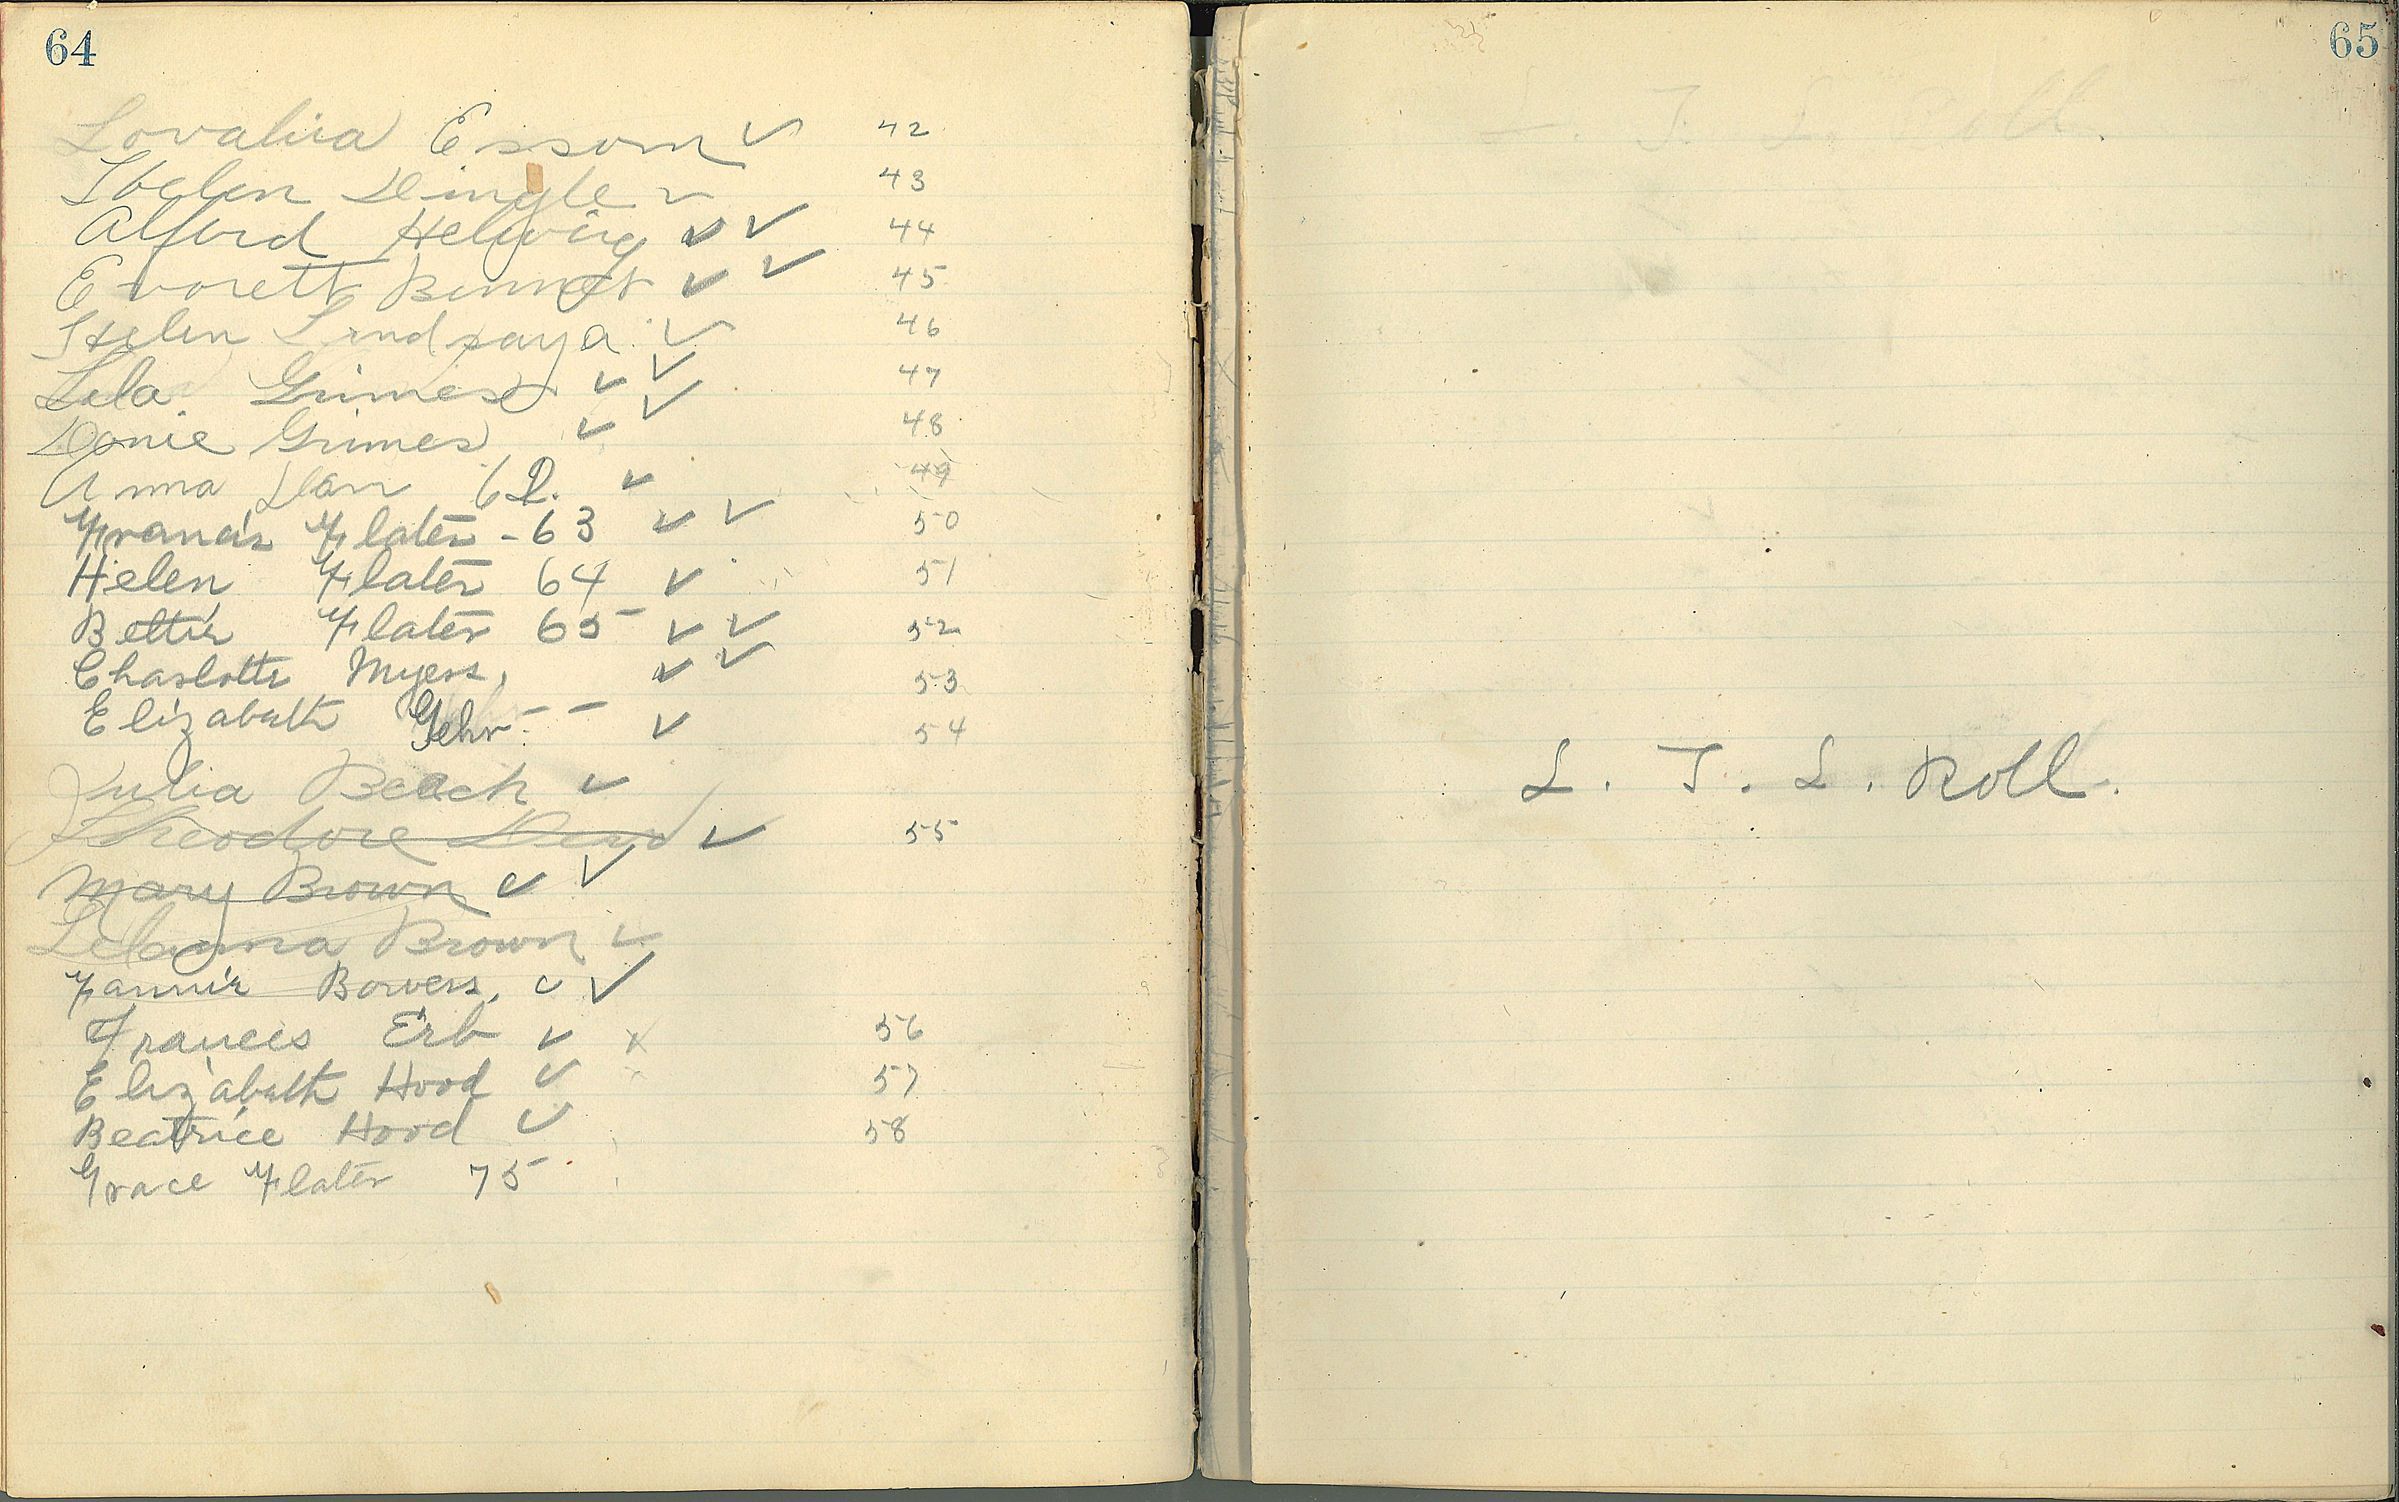 64
Lovalia Essom ✓ 42
Helen Dingle ✓ 43
Alford Helwig ✓ ✓ 44
Everett ✓ ✓ 45
Helen Lindsay a ✓ 46
Lela Grimes ✓ ✓ 47
Donie Grimes ✓ ✓ 48
Anna ✓ 49
Francis Flater - 63 ✓ ✓ 50
Helen Flater 64 ✓ 51
Bettie Flater 65 ✓ ✓ 52
Charlotte Myers, ✓ ✓ 53
Elizabeth Gehr - - ✓ 54
Julia Beach ✓
Theodore ✓ 55
Mary Brown ✓ ✓
Brown ✓
Fannie Bowers, ✓ ✓
Francis Erb ✓ x 56
Elizabeth Hood ✓ 57
Beatrice Hood ✓ 58
Grace Flater 75
65
L. T. L. Roll.
L. T. L. Roll.